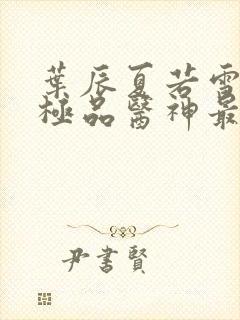 葉辰夏若雪
極品醫神最
尹書賢